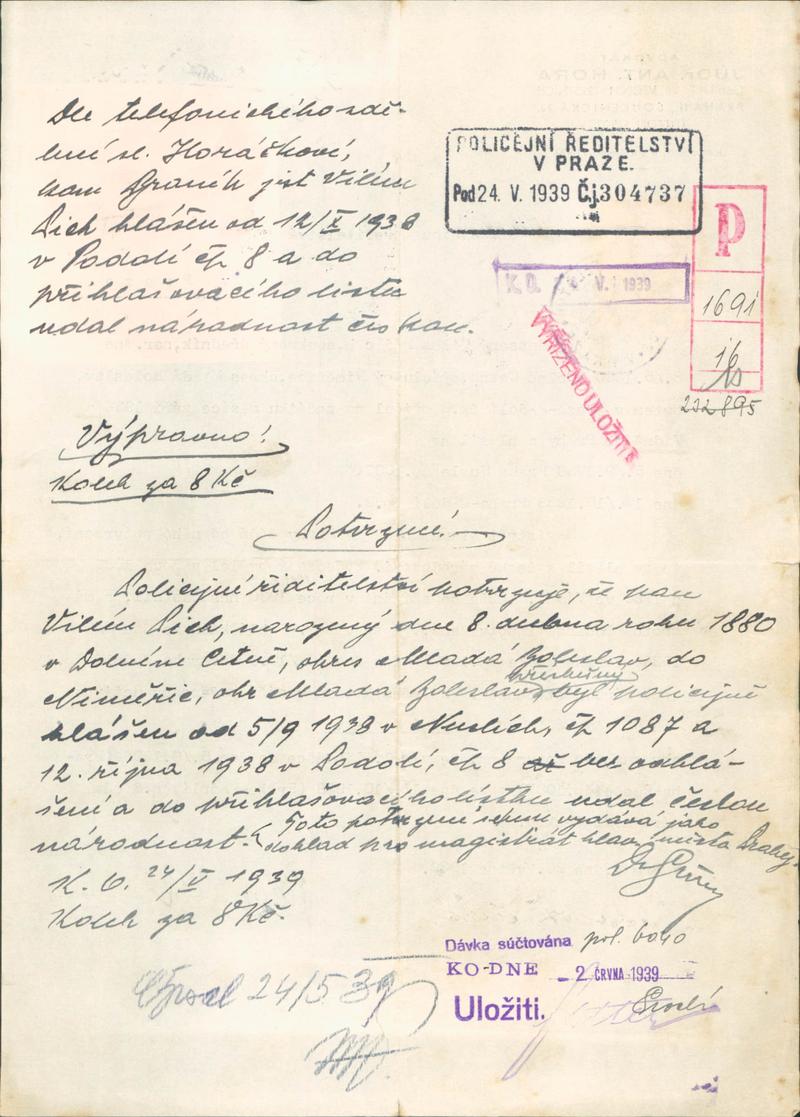 Dle telefonického sdě-
lení sl. Horáčkové,
kom Braník jest Vilém
Pick hlášen od 12/X 1938
v Podolí čp 8 a do
přihlašovacího listu
udal národnost českou.
POLICEJNÍ ŘEDITELSTVÍ
V PRAZE.
Pod 24. V. 1939 Čj. 304737
P
1691
16
232895
K.D. V. 1939
VYŘÍZENO ULOŽITI
Výpravno!
Kolek za 8 Kč
Potvrzení.
Policejní ředitelství potvrzuje, že pan
Vilém Pick, narozený dne 8. dubna roku 1880
v Dolním Cetně, okres Mladá Boleslav, do
Niměřic, okr Mladá Boleslav příslušný byl policejně
hlášen od 5/9 1938 v Nuslích, čp 1087 a
12. října 1938 v Podolí, čp 8 bez odhlá-
šení a do přihlašovacího lístku udal českou
národnost. Toto potvrzení se mu vydává jako
doklad pro magistrát hlav. města Prahy.
K. O. 24/V 1939
Kolek za 8 Kč.
24/5 39
Dávka súčtována pol. 6040
KO-DNE - 2 ČRVNA 1939
Uložiti.